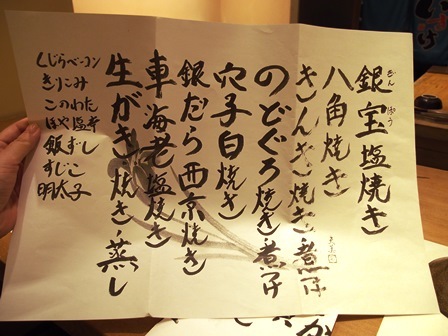 銀宝塩焼き
ぎんぽう
八角焼き
きんき焼き・煮付
のどぐろ焼き・煮つけ
穴子白焼き
銀だら西京焼き
車海老塩焼き
生がき焼き・蒸し
くじらベーコン
きりこみ
このわた
ほや塩辛
すじこ
明太子